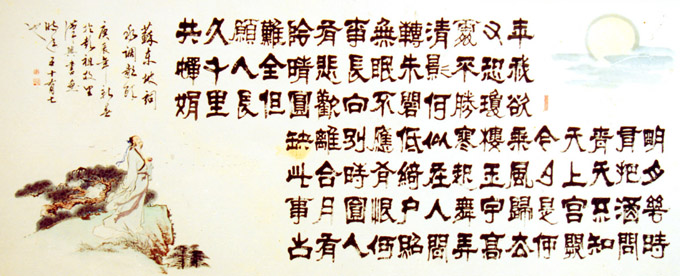 明月幾時
有把酒問
青天不知
天上宮闕
今夕是何
年我欲乘風歸去
又恐瓊樓玉宇高
處不勝寒起舞弄
清影何似在人間
轉朱閣低綺戶照
無眠不應有恨何
事長向別時圓人
有悲歡離合月有
陰晴圓缺此事古
難全但
願人長
久千里
共嬋娟
蘇東坡詞
水調歌頭
庚辰年新春
於彭祖故里
時年五十有七